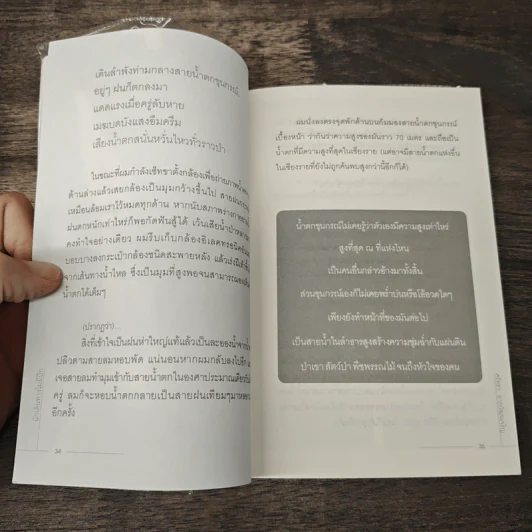 เดินลำพังท่ามกลางสายน้ำตกขุนกรณ์
อยู่ๆ ฝนก็ตกลงมา
แดดแรงเมื่อครู่ลับหาย
เมฆบดบังแสงยิ่มครึ้ม
เสียงน้ำตกสนั่นหวั่นไหวทั่วราวป่า
ในขณะที่ผมกำลังเซ็ทขาตั้งกล้องเพื่อถ่ายภาพน้ำตก
ด้านล่างแล้วเลยกล้องเป็นมุมกว้างขึ้นไป สายฝน
เหมือนล้อมเราไว้หมดทุกด้าน หากนับสภาพร่างกาย
ฝนตกหนักเท่าไหร่ก็พอกัดฟันสู้ได้ เว้นเสียน้ำป่าหลาก
คงทำใจอย่างเดียว ผมรีบเก็บกล้องอิเลคทรอนิคอัน
บอบบางลงกระเป๋ากล้องชนิดสะพายหลัง แล้วเร่งฝีเท้า
จากเส้นทางน้ำไหล ซึ่งเป็นมุมที่สูงพอจนสามารถมองเห็น
น้ำตกได้เต็มๆ
(ปรากฏว่า)...
สิ่งที่เข้าใจเป็นฝนห่าใหญ่แท้แล้วเป็นละอองน้ำจาก
ปลิวตามสายลมหอบพัด แน่นอนหากผมกลับลงไปอีก
เจอสายลมทำมุมเข้ากับสายน้ำตกในองศาประมาณเดียวกับเมื่อ
ครู่ ลมก็จะหอบน้ำตกกลายเป็นสายฝนเทียมๆมาหลอก
อีกครั้ง
34
ผมนั่งลงตรงจุดพักด้านบนก้มมองสายน้ำตกขุนกรณ์
เบื้องหน้า ว่ากันว่าความสูงของมันราว 70 เมตร และถือเป็น
น้ำตกที่มีความสูงที่สุดในเชียงราย (แต่อาจมีสายน้ำตกแห่งอื่น
ในเชียงรายที่ยังไม่ถูกค้นพบสูงกว่านี้อีกก็ได้)
น้ำตกขุนกรณ์ไม่เคยรู้ว่าตัวเองมีความสูงเท่าไหร่
สูงที่สุด ณ ที่แห่งไหน
เป็นคนอื่นกล่าวอ้างมาทั้งสิ้น
ส่วนขุนกรณ์เองก็ไม่เคยพร่ำบ่นหรือโอ้อวดใดๆ
เพียงยังทำหน้าที่ของมันต่อไป
เป็นสายน้ำในลำธารสูงสร้างความชุ่มฉ่ำกับแผ่นดิน
ป่าเขา สัตว์ป่า พืชพรรณไม้ จนถึงหัวใจของคน
35